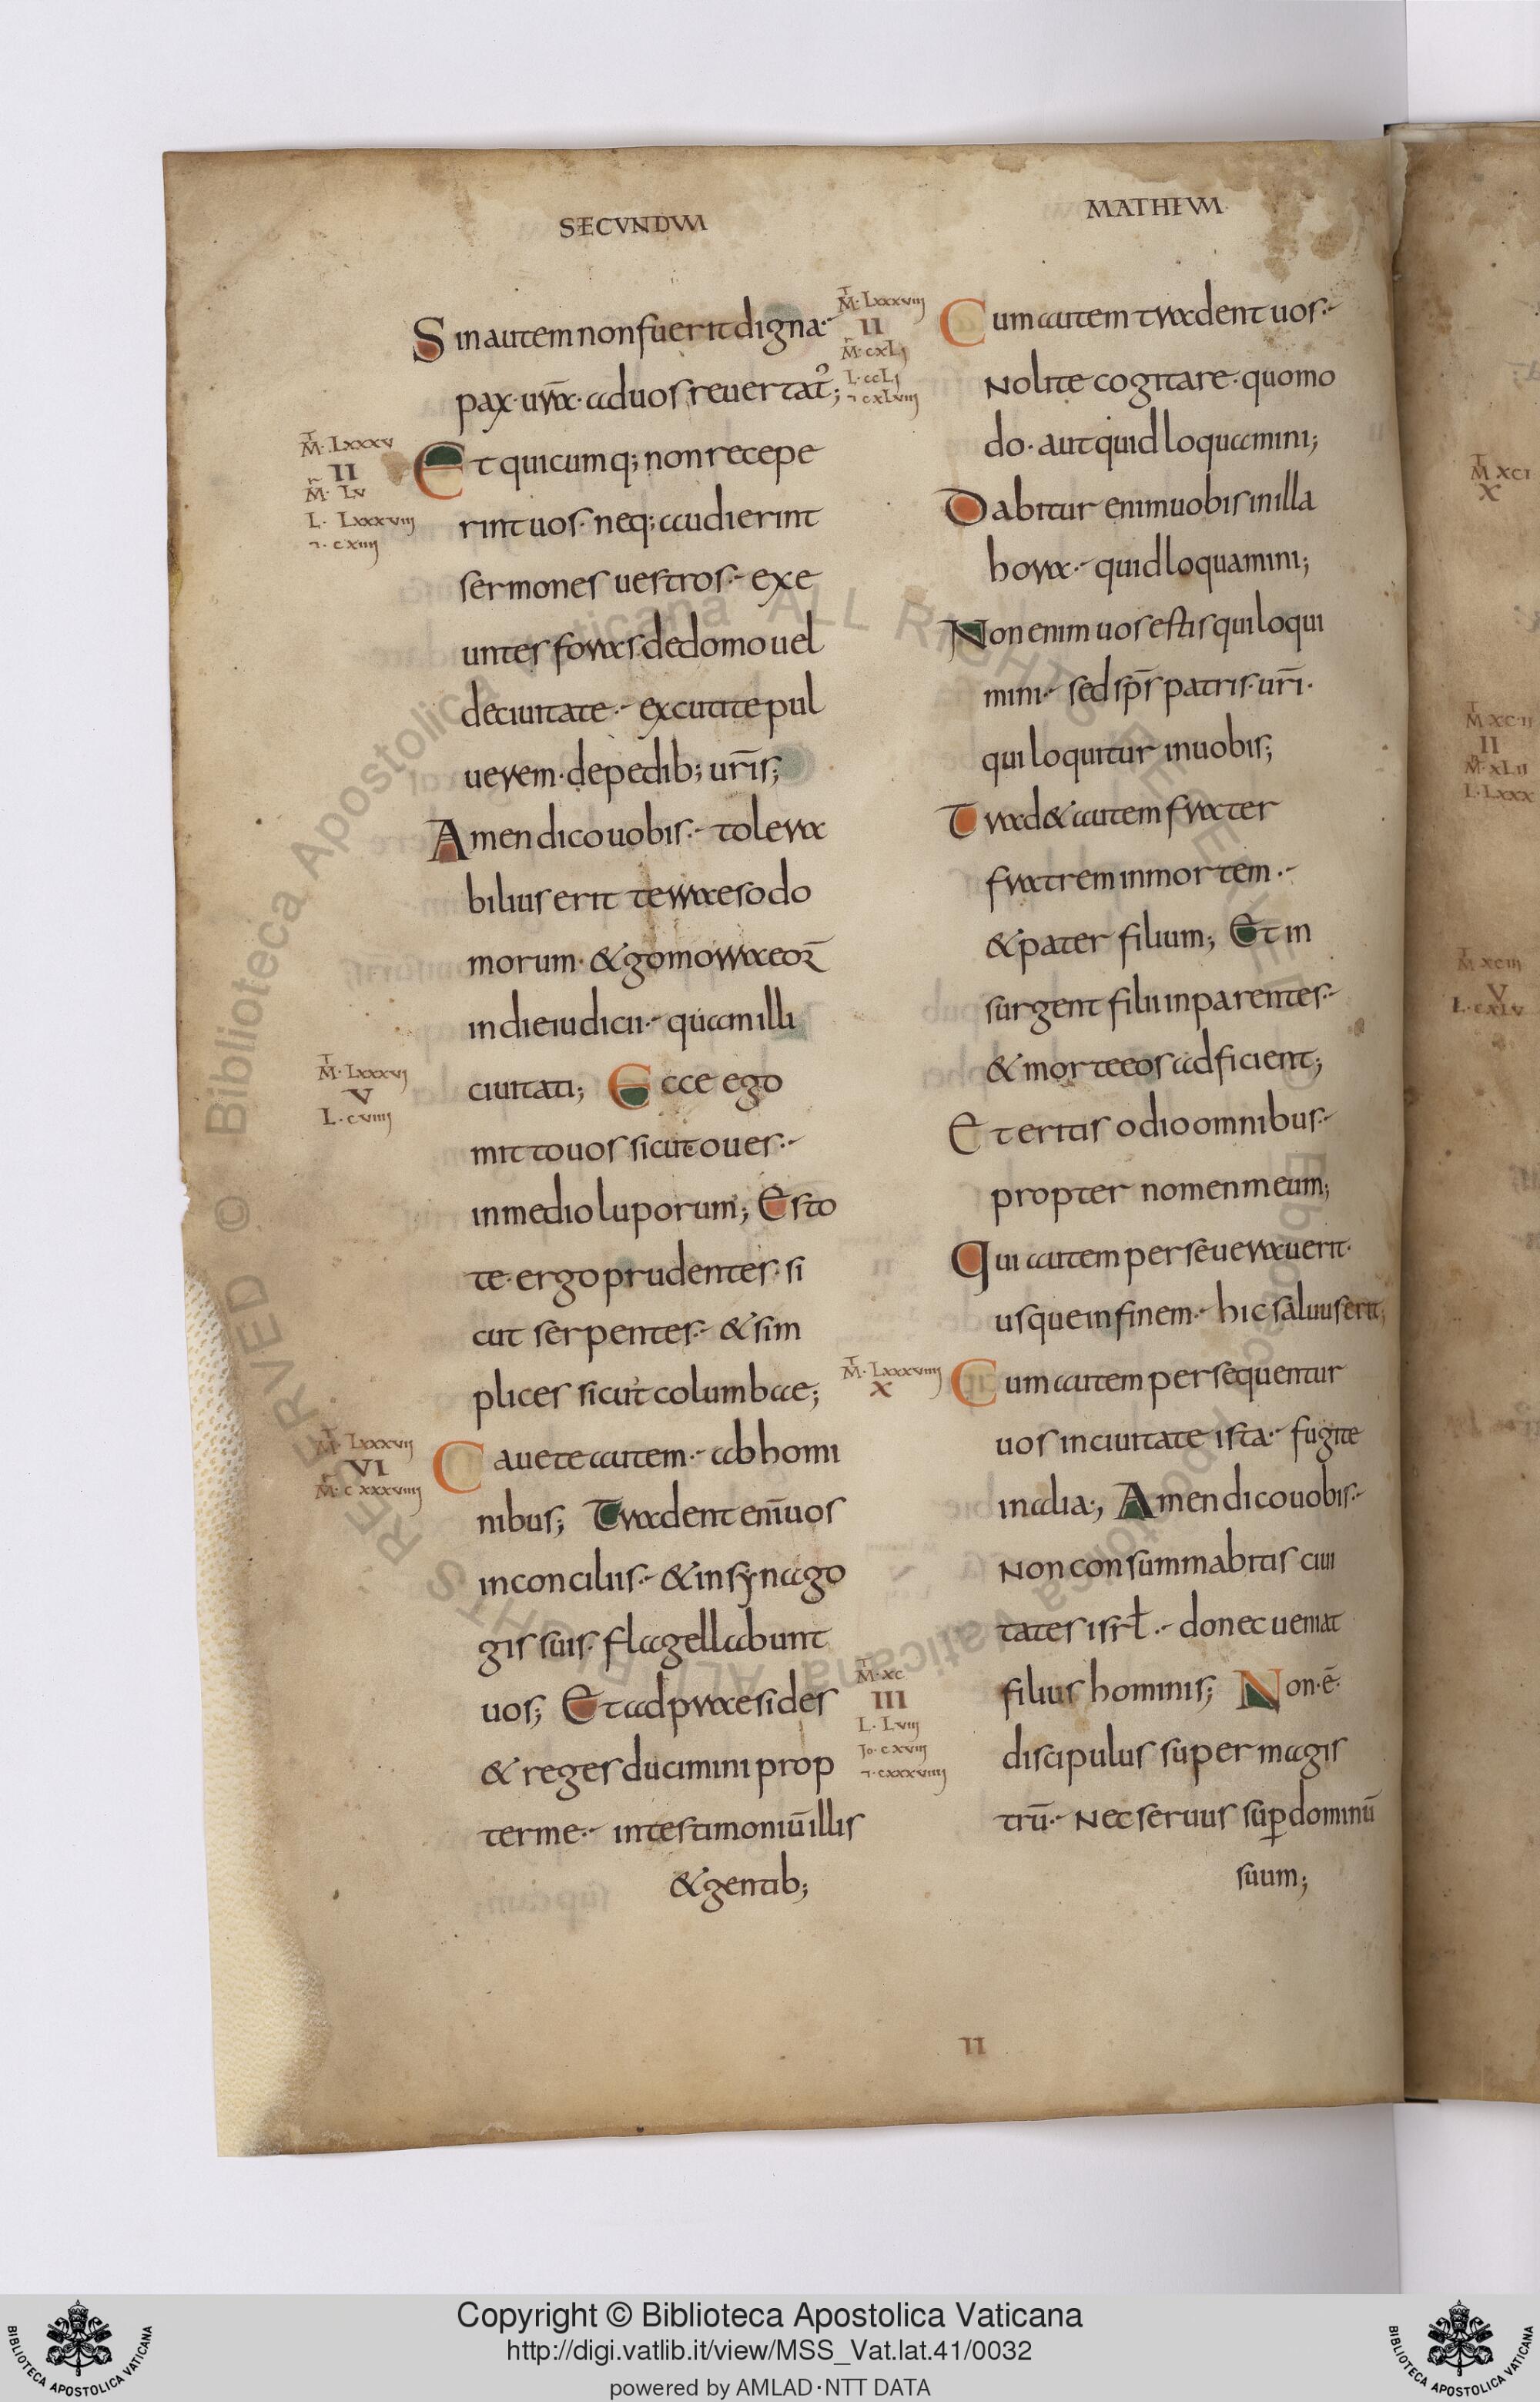 SECVNDVM
Sin autem non fuerit digna
pax· ur̄a· ad uos reuertat᷒;
M̄· Lxxxv
II
M̄· Lv
L· Lxxxviij
⁊· cxiiij
Et quicumq; non recepe
rint uos· neq; audierint
sermones uestros·- exe
untes foras· de domo uel
de ciuitate·- excutite pul
uerem· de pedib; ur̄is;
Amen dico uobis·- tolera
bilius erit terrae sodo
morum· & gomorraeoꝝ
in die iudicii·- quam illi
M̄· Lxxxvj
V
L· cviiij
ciuitati; Ecce ego
mitto uos sicut oues·-
in medio luporum; Esto
te· ergo prudentes· si
cut serpentes·- & sim
plices sicut columbae;
M̄· Lxxxvij
VI
M̄· cxxxviiij
Cauete autem·- ab homi
nibus; Tradent enī uos
in conciliis·- & in synago
gis suis· flagellabunt
uos; Et ad praesides
& reges ducimini prop
ter me·- in testimoniū illis
& gentib;
MATHEVM
M̄· Lxxxviij
II
M̄· cxLj
L· ccLj
⁊ cxLviij
Cum autem tradent uos·-
Nolite cogitare· quomo
do· aut quid loquamini;
Dabitur enim uobis in illa
hora·- quid loquamini;
Non enim uos estis qui loqui
mini·- sed sp̄s patris· ur̄i·
qui loquitur in uobis;
Trad& autem frater
fratrem in mortem·-
& pater filium; Et in
surgent filii in parentes·-
& morte eos adficient;
Et eritis odio omnibus·-
propter nomen meum;
Qui autem perseuerauerit·
usque in finem·- hic saluus erit;
M̄· Lxxxviiij
X
Cum autem persequentur
uos in ciuitate ista·- fugite
in alia; Amen dico uobis·-
Non consummabitis ciui
tates isrł·- donec ueniat
M̄· xc
III
L· Lviij
Jo· cxviij
⁊· cxxxviiij
filius hominis; Non· ē·
discipulus super magis
trū·- Nec seruus sup̱ dominū
suum;
II
M̄ xcI
X
M̄ xcij
II
M̄· xLii
L· Lxxx
M̄ xciij
V
L· cxLv
Copyright © Biblioteca Apostolica Vaticana
http://digi.vatlib.it/view/MSS_Vat.lat.41/0032
powered by AMLAD·NTT DATA
BIBLIOTECA APOSTOLICA VATICANA
BIBLIOTECA APOSTOLICA VATICANA
© Biblioteca Apostolica Vaticana ALL RIGHTS RESERVED © Biblioteca Apostolica Vaticana ALL RIGHTS RESERVED